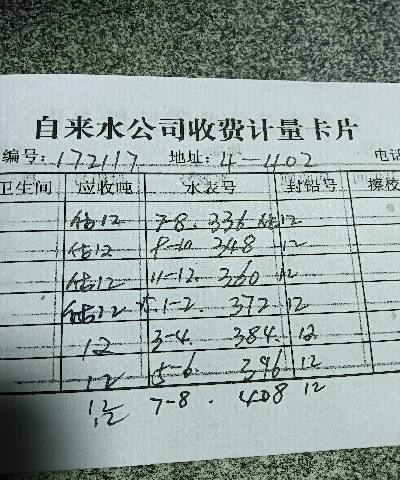 自来水公司收费计量卡片
编号: 172117 地址: 4-402 电话
卫生间 应收吨 水表号 封铅号
估12 7-8. 336 估12
估12 9-10 348 12
估12 11-12. 360 12
估12 1-2. 372 12
12 3-4. 384. 12
12 5-6 396 12
12 7-8. 408 12